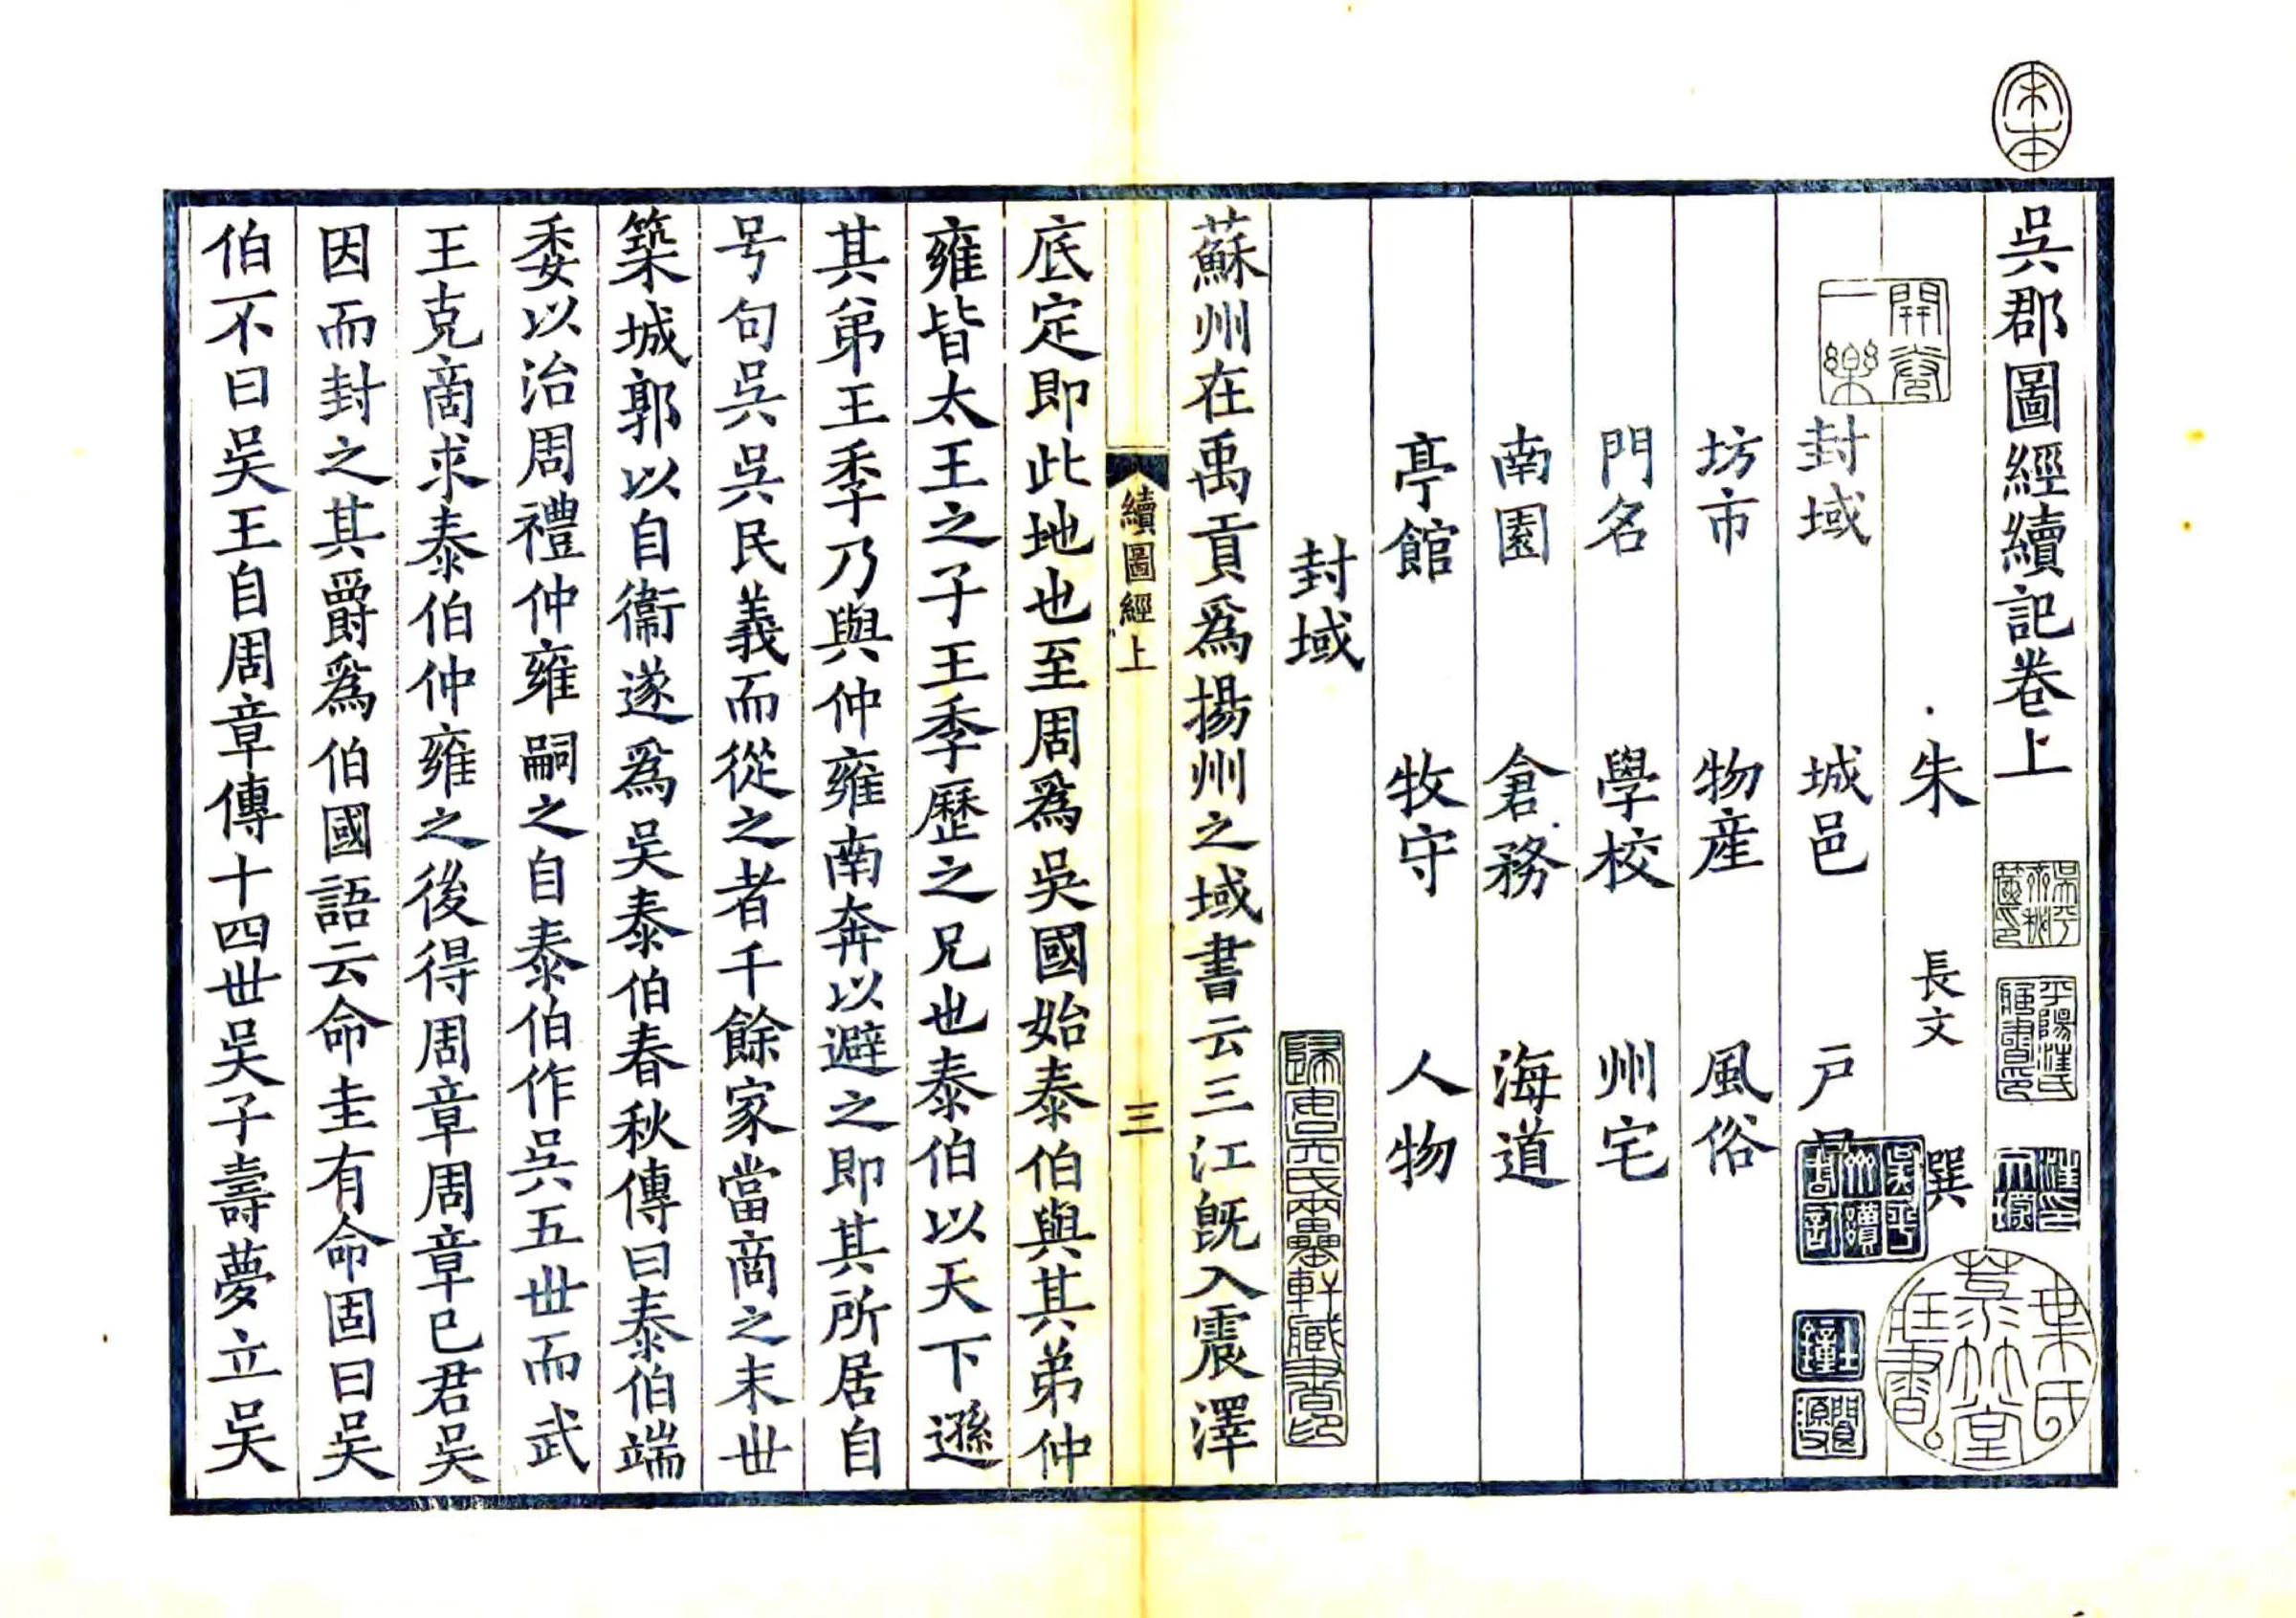 吳郡圖經續記卷上
朱　長文　撰
封域　城邑　戶
坊市　物産　風俗
門名　學校　州宅
南園　倉務　海道
亭館　牧守　人物
封域
蘇州在禹貢爲揚州之域書云三江旣入震澤
底定即此地也至周爲吳國始泰伯與其弟仲
雍皆太王之子王季歷之兄也泰伯以天下遜
其弟王季乃與仲雍南奔以避之即其所居自
号句吳吳民義而從之者千餘家當商之末丗
築城郭以自衞遂爲吳泰伯春秋傳曰泰伯端
委以治周禮仲雍嗣之自泰伯作吳五丗而武
王克商求泰伯仲雍之後得周章周章已君吳
因而封之其爵爲伯國語云命圭有命固曰吳
伯不曰吳王自周章傳十四丗吳子壽夢立吳
續圖經上
三
宋本
開卷一樂
平陽汪氏藏書印
歸安吳氏兩罍軒藏書印
葉氏菉竹堂藏書